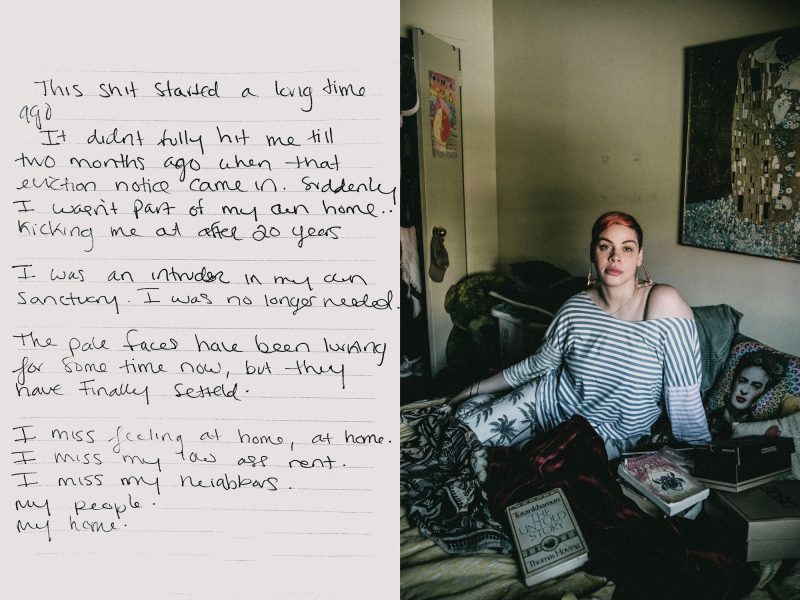 This shit started a long time
ago
It didnt fully hit me till
two months ago when that
eviction notice came in. Suddenly
I wasn't part of my own home..
Kicking me at after 20 years
I was an intruder in my own
sanctuary. I was no longer needed.
The pale faces have been lurking
for some time now, but they
have finally setteld.
I miss feeling at home, at home.
I miss my low ass rent.
I miss my neighbors.
my people.
my home.
Tutankhamun
THE
UNTOLD
STORY
Thomas Hoving